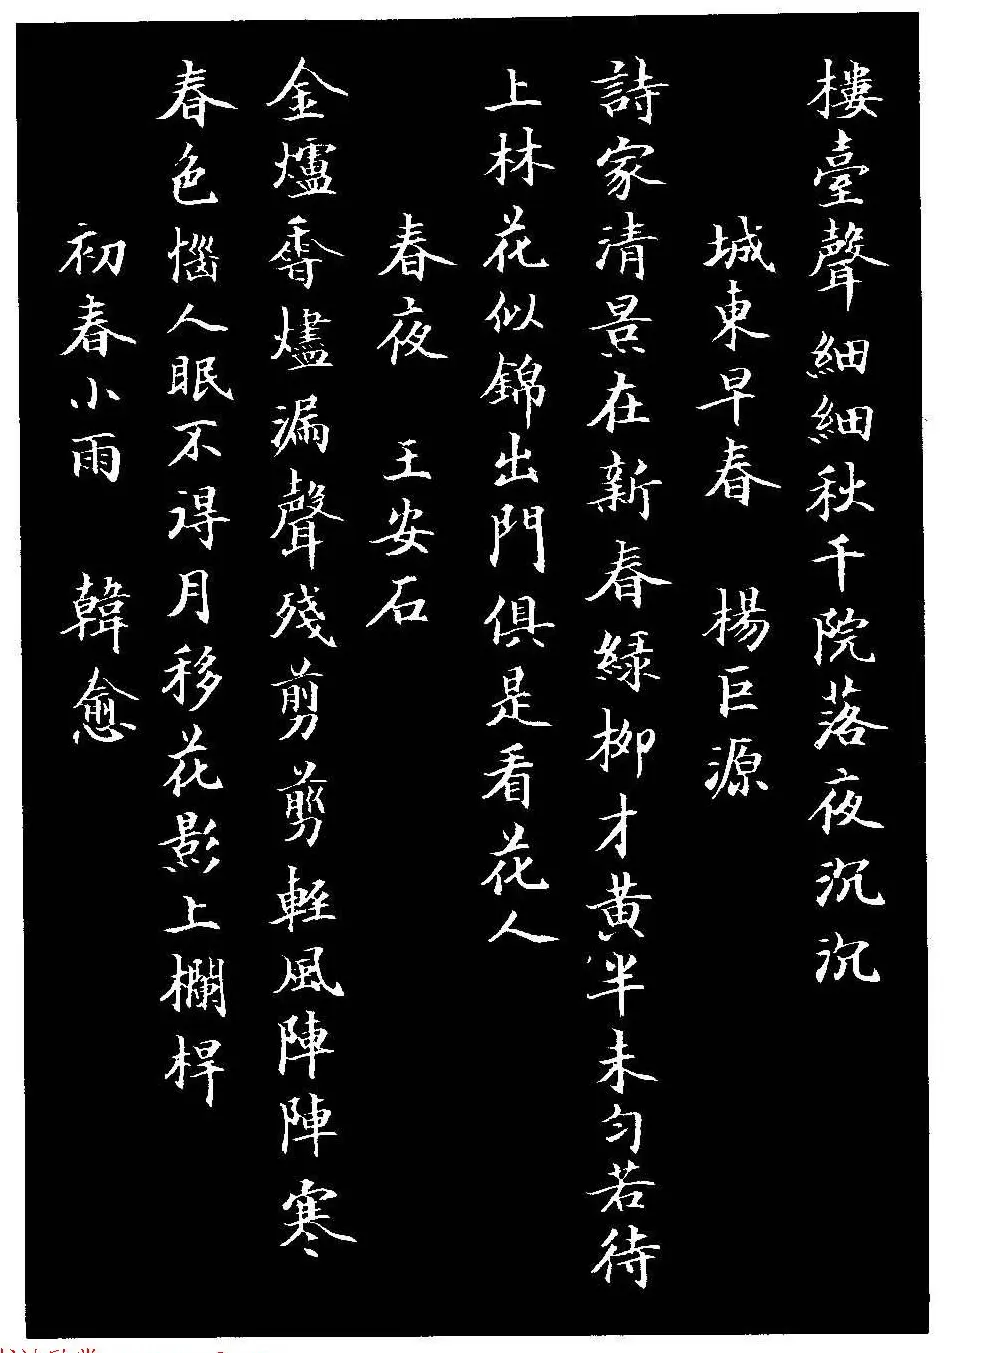 樓臺聲細細秋千院落夜沉沉
城東早春 楊巨源
詩家清景在新春綠柳才黃半未勻若待
上林花似錦出門俱是看花人
春夜 王安石
金爐香燼漏聲殘剪剪輕風陣陣寒
春色惱人眠不得月移花影上欄桿
初春小雨 韓愈